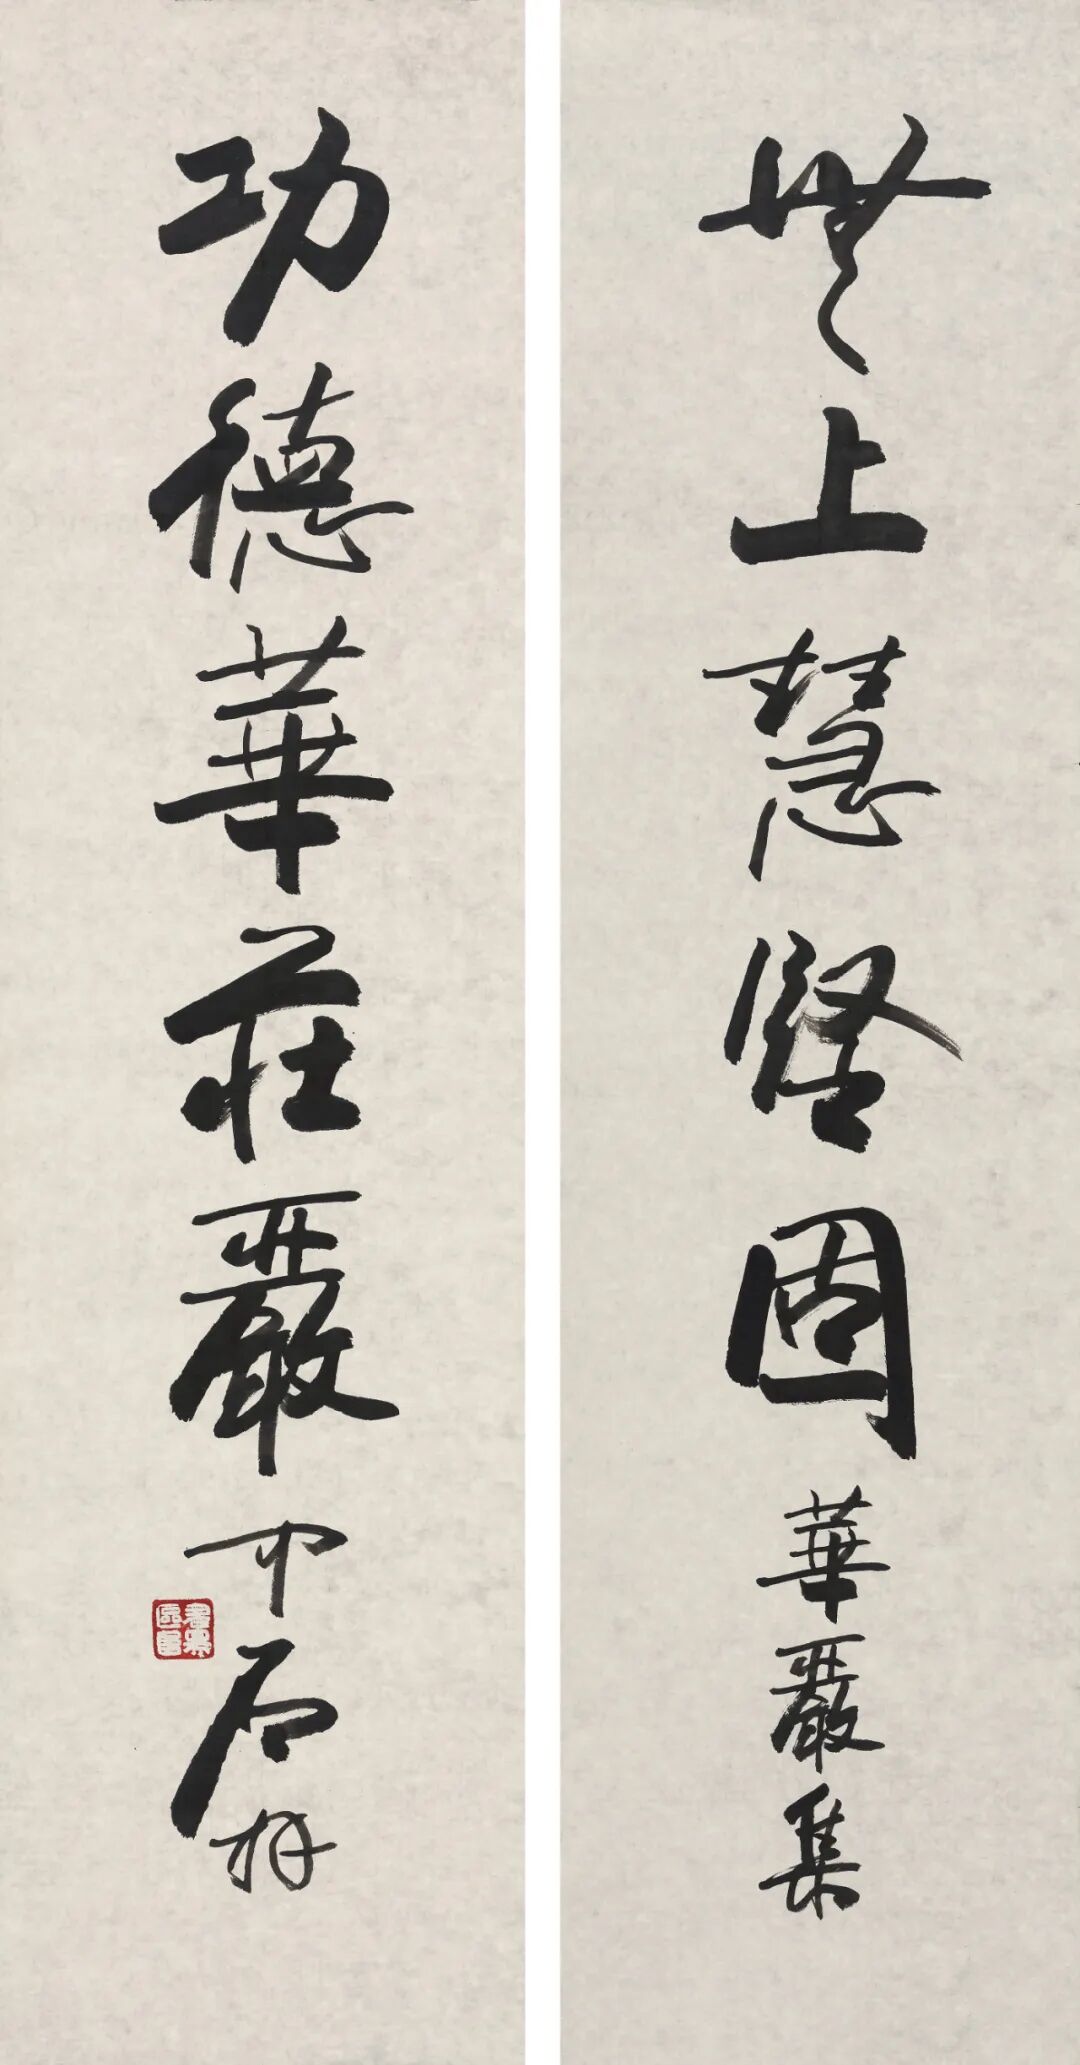 無上慧堅固華嚴集
功德華莊嚴不石拜